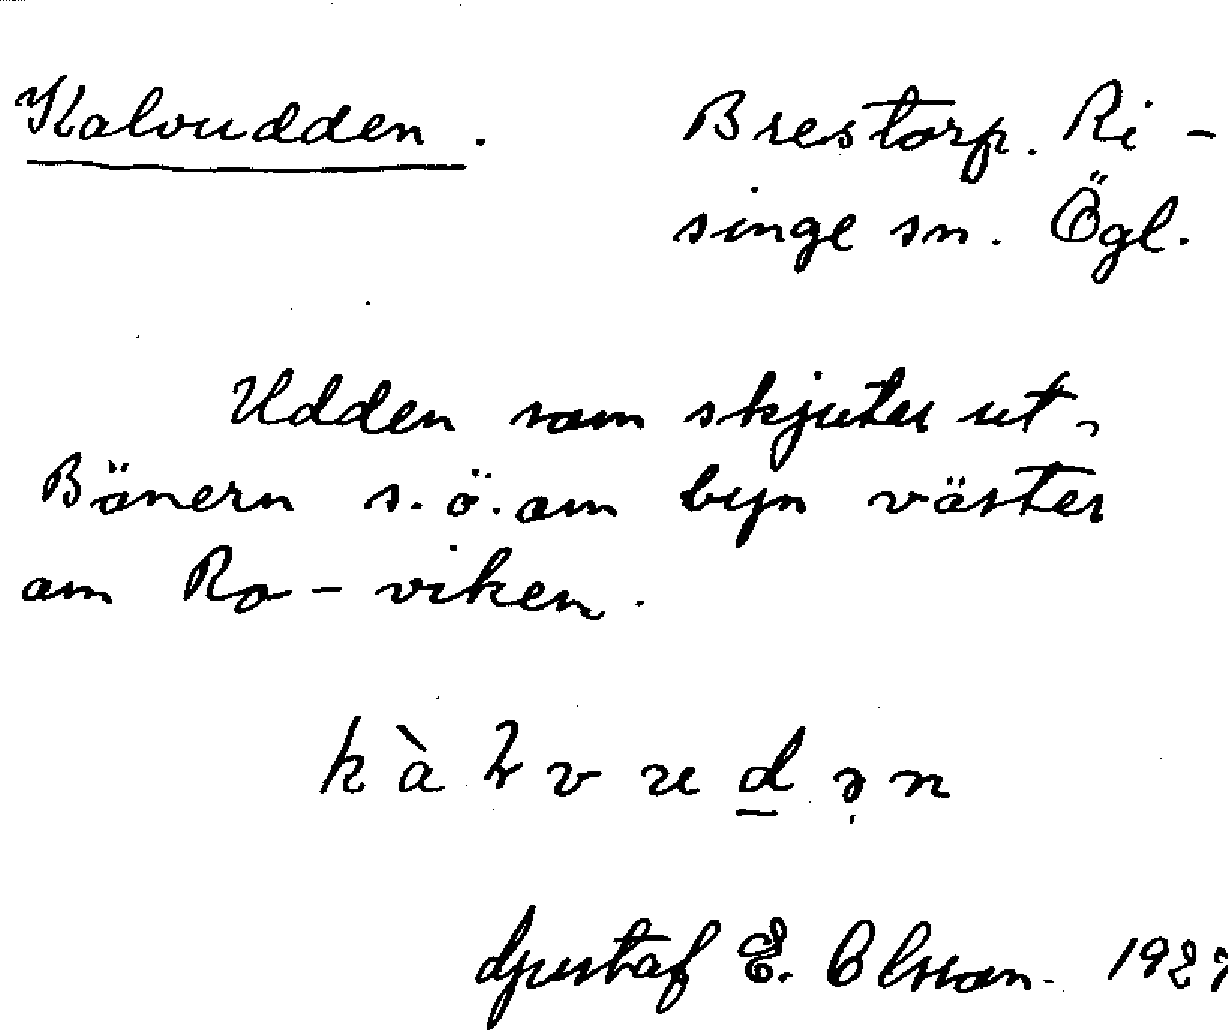 Kalvudden. Brestorp. Ri-
singe sn. Ögl.
Udden som skjuter ut
Bönern s.ö. om byn väster
om Ro-viken.
Gustaf E. Olsson. 1927